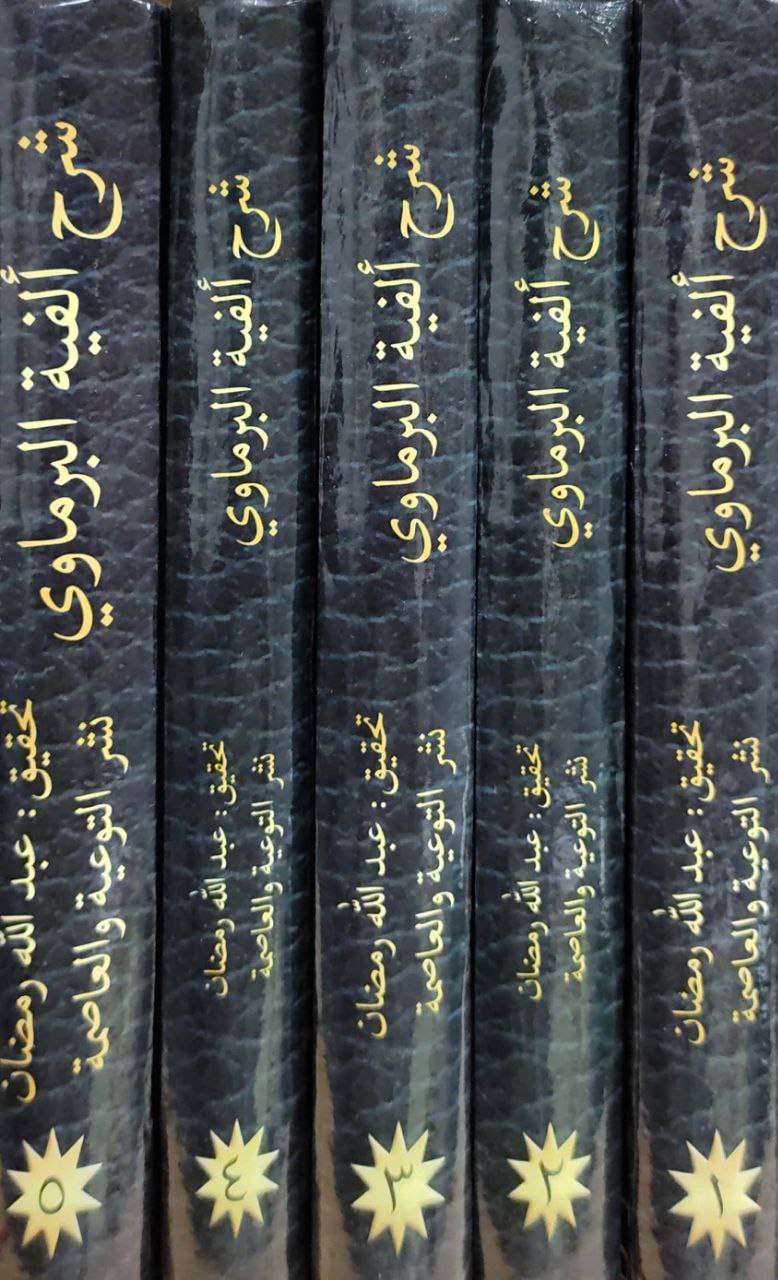 شرح ألفية البرماوي
تحقيق : عبد الله رمضان
نشر التوعية والعاصمة
١
شرح ألفية البرماوي
تحقيق : عبد الله رمضان
نشر التوعية والعاصمة
٢
شرح ألفية البرماوي
تحقيق : عبد الله رمضان
نشر التوعية والعاصمة
٣
شرح ألفية البرماوي
تحقيق : عبد الله رمضان
نشر التوعية والعاصمة
٤
شرح ألفية البرماوي
تحقيق : عبد الله رمضان
نشر التوعية والعاصمة
٥